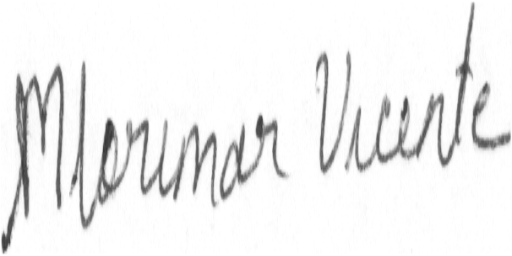 Marimar Vicente